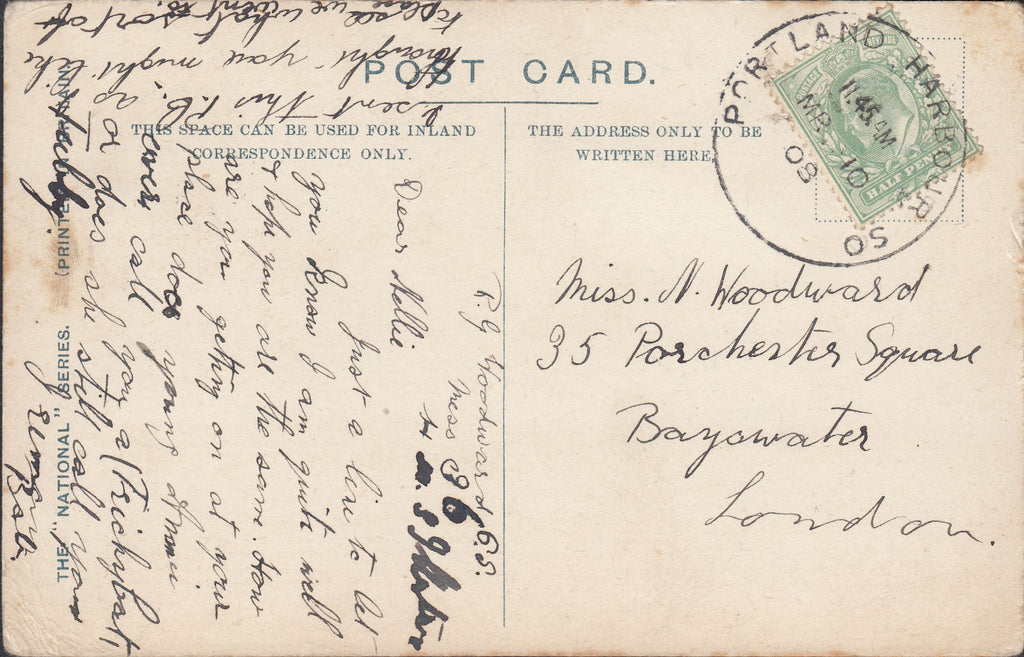 POST CARD.
THIS SPACE CAN BE USED FOR INLAND
CORRESPONDENCE ONLY.
THE ADDRESS ONLY TO BE
WRITTEN HERE.
PORTLAND HARBOUR SO
11.45 AM
10
08
HALF PENNY
Miss. N. Woodward
35 Porchester Square
Bayswater
London.
R. G Woodward
Mess 36
H. M. S
Dear Nellie
Just a line to let
you know I am quite well
& hope you are the same. How
are you getting on at your
place does young
ever call you a (Trichybat,
or does she still call you
Bob.
I sent this P.C. as
thought you might like
to see what sort of
place we went to.
THE "NATIONAL" SERIES.